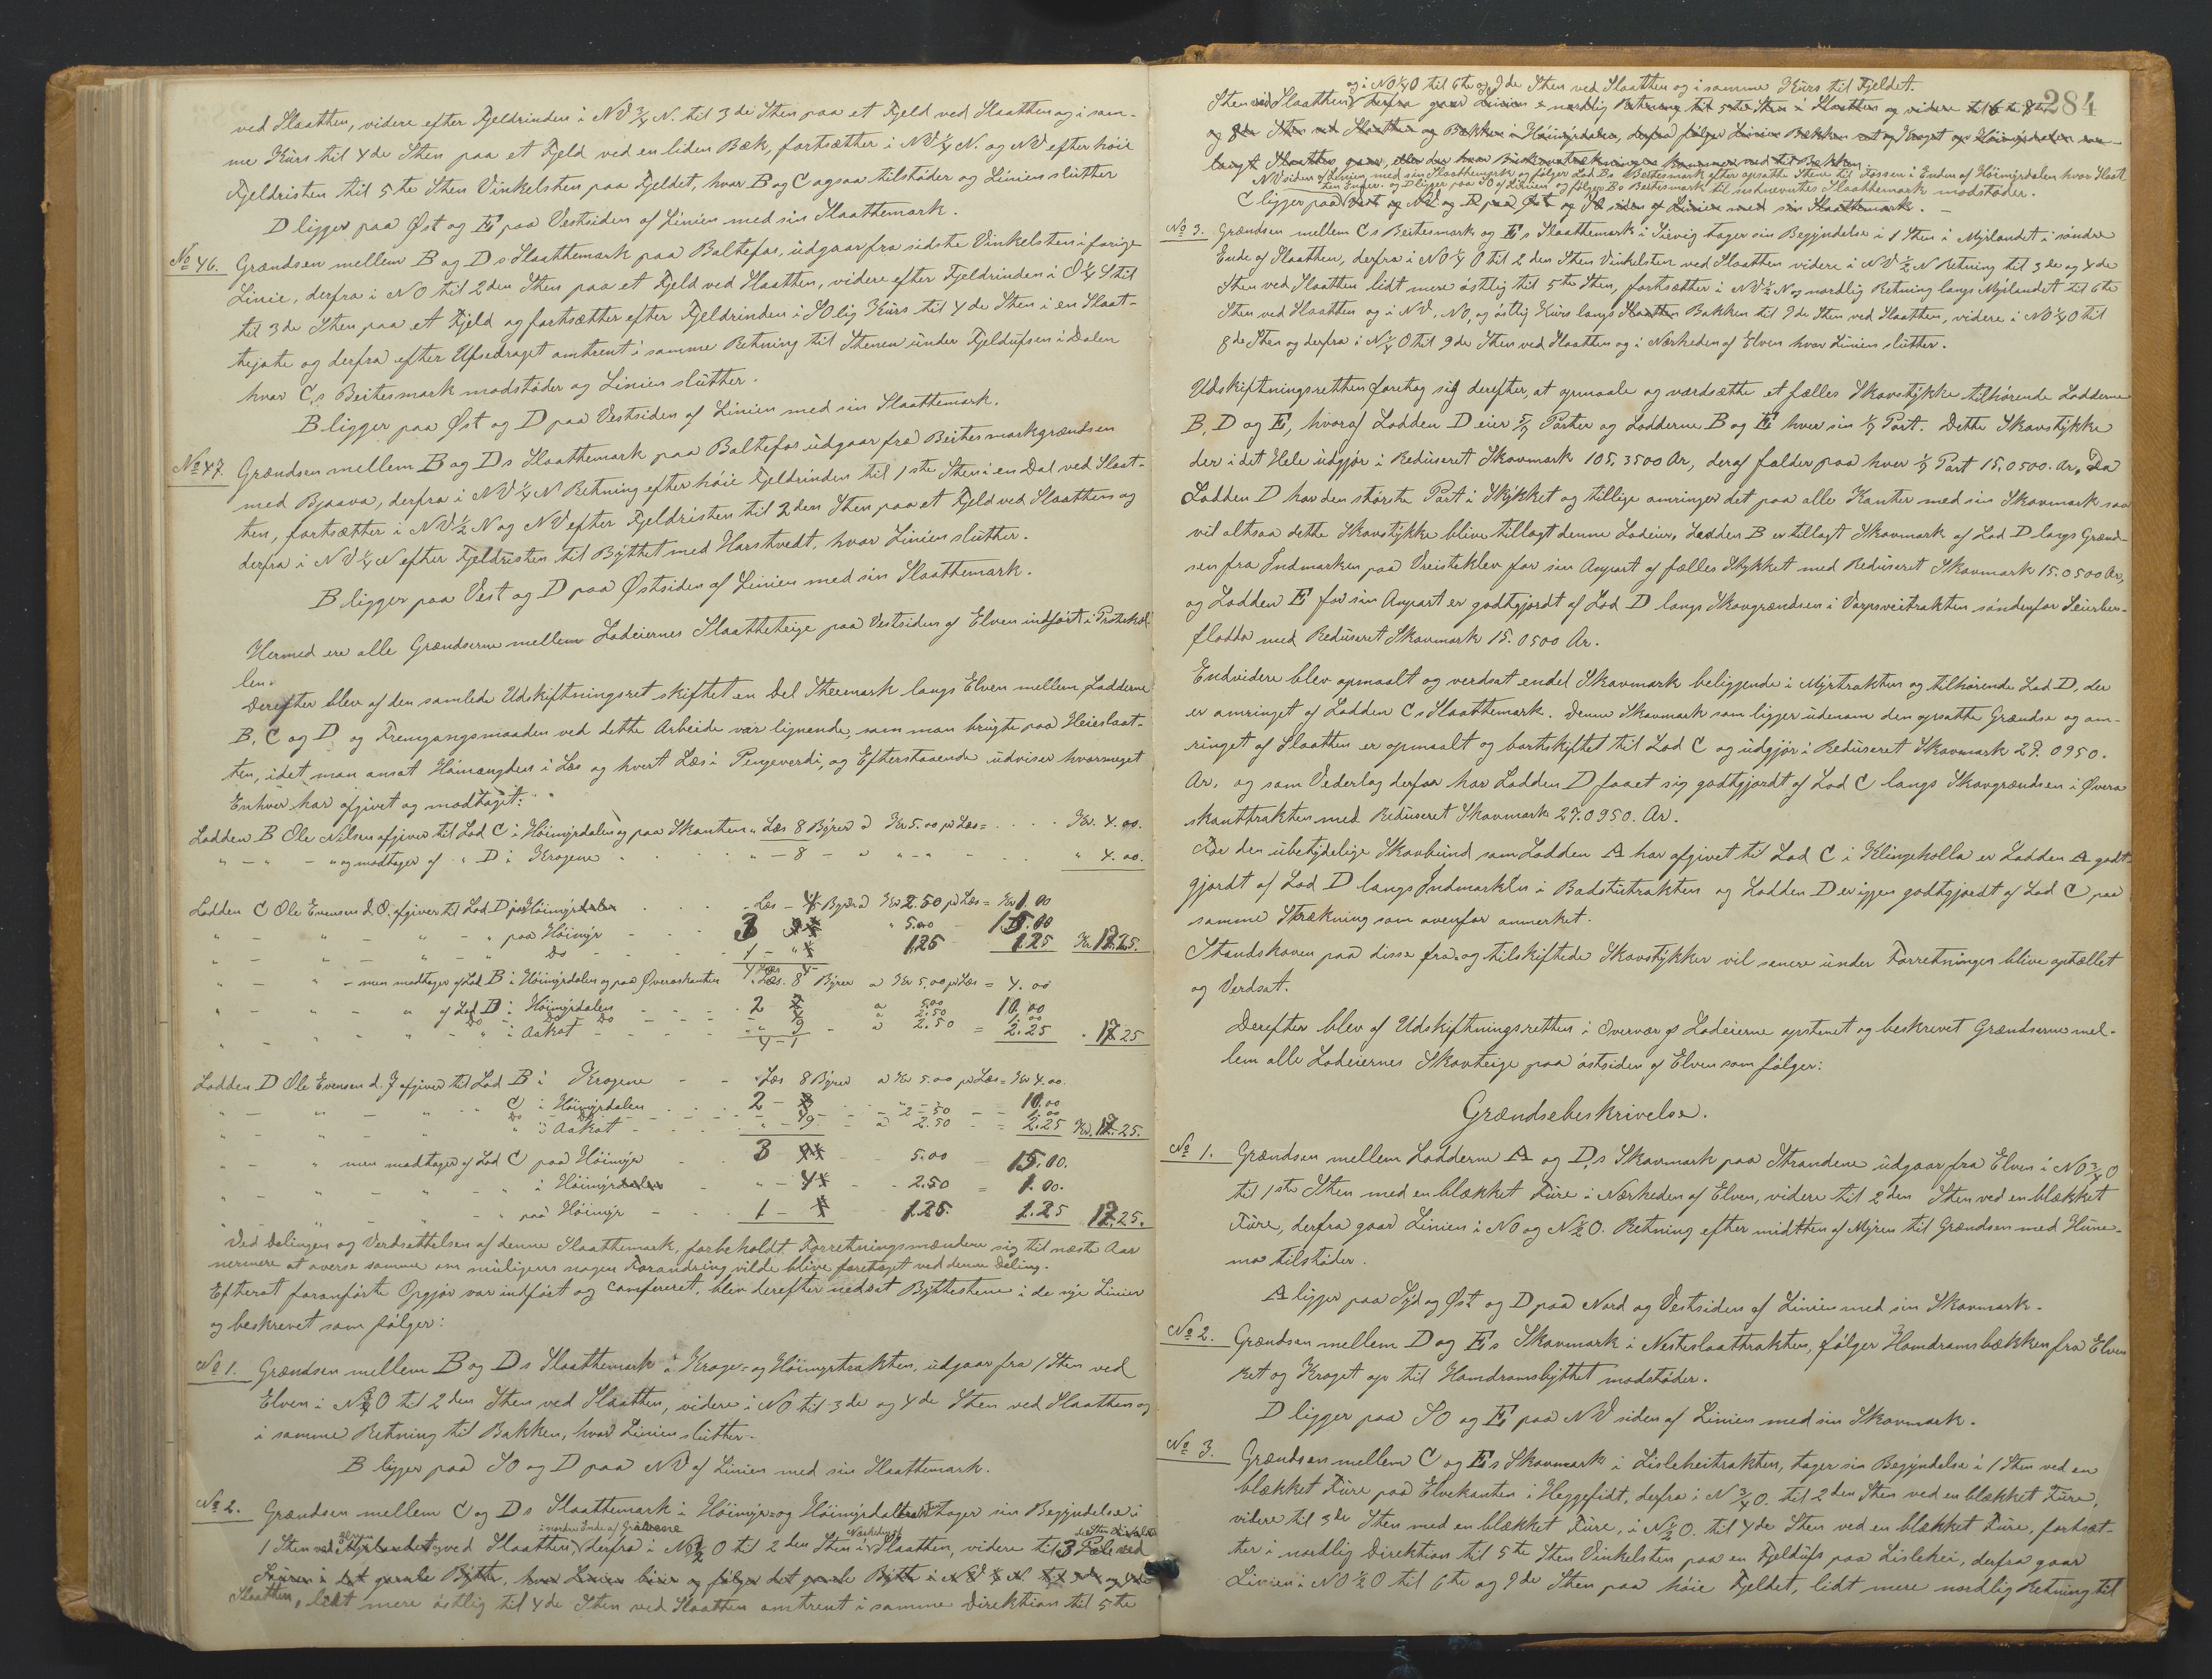 ved Slaatten, videre efter Fjeldrinden i NV ¾ N. til 3de Sten paa et Fjeld ved Slaatten og i sam-
me Kurs til 4de Sten paa et Fjeld ved en liden Bæk, fortsætter i NV ¼ N. og NV efter høie
Fjeldristen til 5te Sten Vinkelsten paa Fjeldet, hvor B og C ogsaa tilstøder og Linien slutter
D ligger paa Øst og E paa Vestsiden af Linien med sin Slaattemark.
No 46. Grændsen mellem B og Ds Slaattemark paa Baltefos, udgaar fra sidste Vinkelsten i forige
Linie, derfra i NO til 2den Sten paa et Fjeld ved Slaatten, videre efter Fjeldrinden i O ¼ S til
til 3de Sten paa et Fjeld og fortsætter efter Fjeldrinden i SOlig Kurs til 4de Sten i en Slaat-
tejote og derfra efter Ufsedraget omtrent i samme Retning til Stenen under Fjeldufsen i Dalen
hvor C,s Beitesmark modstøder og Linien slutter.
B ligger paa Øst og D paa Vestsiden af Linien med sin Slaattemark.
No 47. Grændsen mellem B og Ds Slaattemark paa Baltefos udgaar fra Beitesmarkgrændsen
med Bjaava, derfra i NV ¼ N Retning efter høie Fjeldrinden til 1ste Sten i en Dal ved Slaat-
ten, fortsætter i NV ½ N og NV efter Fjeldristen til 2den Sten paa et Fjeld ved Slaatten og
derfra i NV ¼ N efter Fjeldristen til Byttet med Harstvedt, hvor Linien slutter.
B ligger paa Vest og D paa Østsiden af Linien med sin Slaattemark.
Hermed ere alle Grændserne mellem Lodeiernes Slaatteteige paa Vestsiden af Elven indført i Protokol-
len.
Derefter blev af den samlede Udskiftningsret skiftet en Del Slettemark langs Elven mellem Lodderne
B, C og D og Fremgangsmaaden ved dette Arbeide var lignende, som man brugte paa Heieslaat-
ten, idet man ansat Hømængden i Læs og hvert Læs i Pengeverdi, og Efterstaaende udviser hvormeget
Enhver har afgivet og modtaget:
Lodden B Ole Nilsen afgiver til Lod C i Høimyrdalen og paa Skanten " Læs 8 Byrer a Kr 5.00 pr Læs = Kr. 4.00.
" og modtager af " D i Krogene " - 8 - " " 4.00.
Lodden C Ole Evensen d. O. afgiver til Lod D paa Høimyr " Læs - 4 Byrer a Kr 2.50 pr Læs = Kr 1.00
" paa Høimyr 3 " 5.00 15.00
" Do 1 - " 1.25 1.25 Kr. 17.25.
" - men modtager af Lod B i Høimyrdalen og paa Øveraskanten " Læs. 8 Byrer a Kr 5.00 pr Læs = 4.00
" af Lod D i Høimyrdalen 2 a 5.00 10.00
Do Do a 2.50 1.00
" i Aakot " 9 a 2.50 = 2.25 " 17.25
4 - 1
Lodden D Ole Evensen d. J afgiver til Lod B i Krogene " Læs 8 Byrer a Kr 5.00 pr Læs = Kr 4.00.
C i Høimyrdalen 2 - 10.00
Do Do 2.50 1.00
" i Aakot " - 9 - a 2.50 = 2.25 Kr. 17.25.
" men modtager af Lod C paa Høimyr 3 5.00 15.00.
" i Høimyr " - 4 2.50 = 1.00.
" paa Høimyr 1 - 1.25. 1.25 17.25.
Ved Delingen og Verdsættelsen af denne Slaattemark, forbeholdt Forretningsmændene sig til næste Aar
nermere at overse samme om muligens nogen Forandring vilde blive foretaget ved denne Deling.
Efterat foranførte Opgjør var indført og confereret, blev derefter nedsat Byttestene i de nye Linier
og beskrevet som følger:
No 1. Grændsen mellem B og Ds Slaattemark i Kroge- og Høimyrtrakten, udgaar fra 1 Sten ved
Elven i N O til 2den Sten ved Slaatten, videre i NO til 3de og 4de Sten ved Slaatten og
i samme Retning til Bakken, hvor Linien slutter.
B ligger paa SO og D paa NV af Linien med sin Slaattemark.
No 2. Grændsen mellem C og Ds Slaattemark i Høimyr- og Høimyrdaltrakt tager sin Begyndelse i
i nordre Ende af
1 Sten ved Slaatten, derfra i N ½ O til 2den Sten i Nærheden af Slaatten, videre til 3
Furen i det gamle Bytte, hvor Linien
Slaatten, lidt mere østlig til 4de Sten ved Slaatten omtrent i samme Direktion til 5te
284
og i NO ¼ O til 6te og 7de Sten ved Slaatten og i samme Kurs til Fjeldet.
Sten ved Slaatten derfra gaar Linien i nordlig Retning til 5te Sten i Slaatten og videre til 6te
og Sten ved Slaatten og Bækken i Høimyrdalen, derfra følger Linien Bækken
langt Slaatten gaar, eller der hvor
NVsiden af Linien med sin Slaattemark og følger Lod Bs Beitesmark efter opsatte Stene til Fossen i Enden af Høimyrdalen hvor Slaat-
ten Ender. og D ligger paa SO af Linien og følger Bs Beitesmark til nesnevntes Slaattemark modstøder.
C ligger paa Vest og NV og D paa Øst og SO siden af Linien med sin Slaattemark.
No 3. Grændsen mellem Cs Beitesmark og Es Slaattemark i Sievig tager sin Begyndelse i 1 Sten i Myrlandet i søndre
Ende af Slaatten, derfra i NO ¼ O til 2den Sten Vinkelsten ved Slaatten videre i NV ½ N Retning til 3de og 4de
Sten ved Slaatten lidt mere østlig til 5te Sten, fortsætter i NV ½ N og nordlig Retning langs Myrlandet til 6te
Sten ved Slaatten og i NV, NO, og østlig Kurs langs Slaatten Bakken til 7de Sten ved Slaatten, videre i NO ¼ O til
8de Sten og derfra i N ¼ O til 9de Sten ved Slaatten og i Nærheden af Elven hvor Linien slutter.
Udskiftningsretten foretog sig derefter, at opmaale og værdsætte et fælles Skovstykke tilhørende Lodderne
B, D og E, hvoraf Lodden D eier 5/7 Parter og Lodderne B og E hver sin 1/7 Part. Dette Skovstykke
der i det Hele udgjør i Reduseret Skovmark 105,3500 Ar, deraf falder paa hver 1/7 Part 15,0500. Ar. Da
Lodden D har den største Part i Stykket og tillige omringer det paa alle Kanter med sin Skovmark saa
vil altsaa dette Skovstykke blive tillagt denne Lodeier. Lodden B er tillagt Skovmark af Lod D langs Grænd-
sen fra Indmarken paa Vreisteklev for sin Anpart af fælles Stykket med Reduseret Skovmark 15.0500 Ar,
og Lodden E for sin Anpart er godtgjordt af Lod D langs Skovgrændsen i Varpsveitrakten søndenfor Seurber-
flodda med Reduseret Skovmark 15.0500 Ar.
Endvidere blev opmaalt og verdsat endel Skovmark beliggende i Myrtrakten og tilhørende Lod D, der
er omringet af Lodden Cs Slaattemark. Denne Skovmark som ligger udenom den opsatte Grændse og om-
ringet af Slaatten er opmaalt og bortskiftet til Lod C og udgjør i Reduseret Skovmark 27.0950.
Ar. og som Vederlag derfor har Lodden D faaet sig godtgjordt af Lod C langs Skovgrændsen i Øvera
skanttrakten med Reduseret Skovmark 27.0950. Ar.
For den ubetydelige Skovbund som Lodden A har afgivet til Lod C i Klingekolla er Lodden A godt-
gjordt af Lod D langs Indmarken i Badstutrakten og Lodden D er igjen godtgjordt af Lod C paa
samme Strækning som ovenfor anmerket.
Standskoven paa disse fra- og tilskiftede Skovstykker vil senere under Forretningen blive optællet
og Verdsat.
Derefter blev af Udskiftningsretten i Overvær af Lodeierne opstenet og beskrevet Grændserne mel-
lem alle Lodeiernes Skovteige paa østsiden af Elven som følger:
Grændsebeskrivelse.
No 1. Grændsen mellem Lodderne A og D,s Skovmark paa Strandene udgaar fra Elven i NO ¾ O
til 1ste Sten med en blækket Fure i Nærheden af Elven, videre til 2den Sten ved en blækket
Fure, derfra gaar Linien i NO og N ½ O. Retning efter midtten af Myren til Grændsen med Hune-
mo tilstøder.
A ligger paa Syd og Øst og D paa Nord og Vestsiden af Linien med sin Skovmark.
No 2. Grændsen mellem D og Es Skovmark i Nesteslaattrakten, følger Homdramsbækken fra Elven
Ret og Kroget op til Homdramsbyttet modstøder.
D ligger paa SO og E paa NV siden af Linien med sin Skovmark.
No 3. Grændsen mellem C og Es Skovmark i Lisleheitrakten, tager sin Begyndelse i 1 Sten ved en
blækket Fure paa Elvekanten i Heggefidt, derfra i N ¾ O. til 2den Sten ved en blækket Fure,
videre til 3de Sten med en blækket Fure, i N ½ O. til 4de Sten ved en blækket Fure, fortsæt-
ter i nordlig Direktion til 5te Sten Vinkelsten paa en Fjeldufs paa Lislehei, derfra gaar
Linien i NO ½ O til 6te og 7de Sten paa høie Fjeldet, lidt mere nordlig Retning til